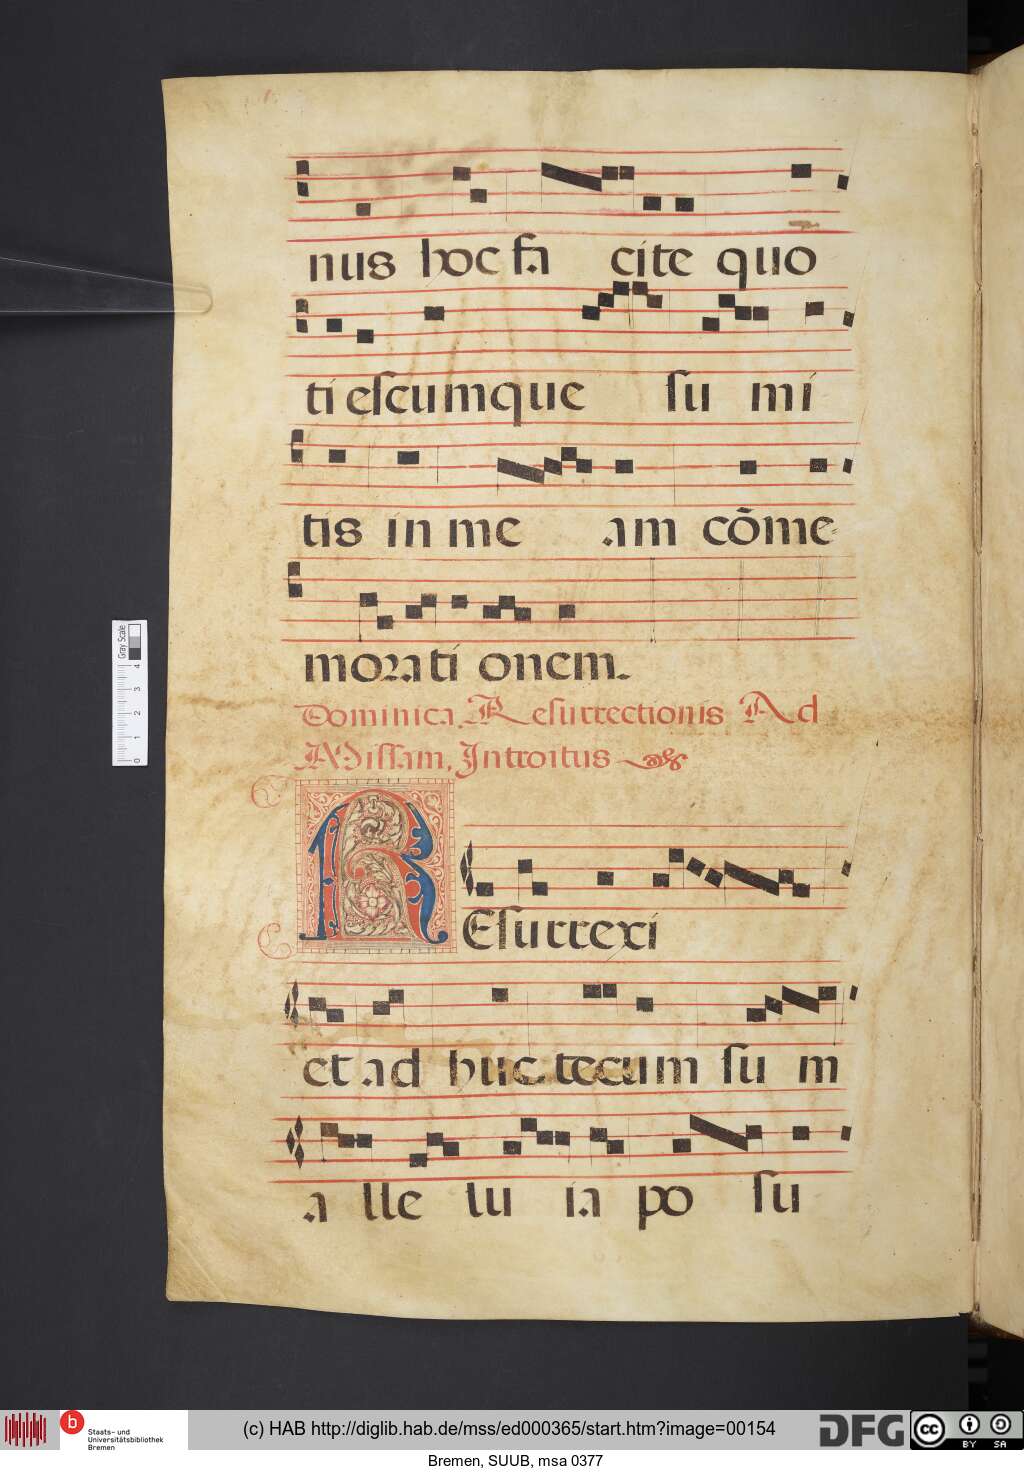 nus hoc fa cite quo
ti escumque su mi
tis in me am cõme-
morati onem.
Dominica Resurrectionis Ad
Missam. Introitus
REsurrexi
et ad huc tecum su m
a lle lu ia po su
Gray Scale
0 1 2 3 4
b Staats- und
Universitätsbibliothek
Bremen
(c) HAB http://diglib.hab.de/mss/ed000365/start.htm?image=00154
DFG
cc BY SA
Bremen, SUUB, msa 0377